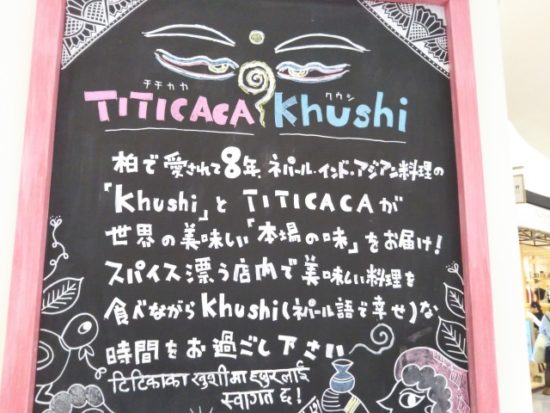 チチカカ クウシ
TITICACA Khushi
柏で愛されて8年、ネパール・インド・アジアン料理の
「Khushi」とTITICACAが
世界の美味しい「本場の味」をお届け!
スパイス漂う店内で美味しい料理を
食べながらKhushi(ネパール語で幸せ)な
時間をお過ごし下さい
टिटिकाका खुशीमा हजुरलाई
स्वागत छ!